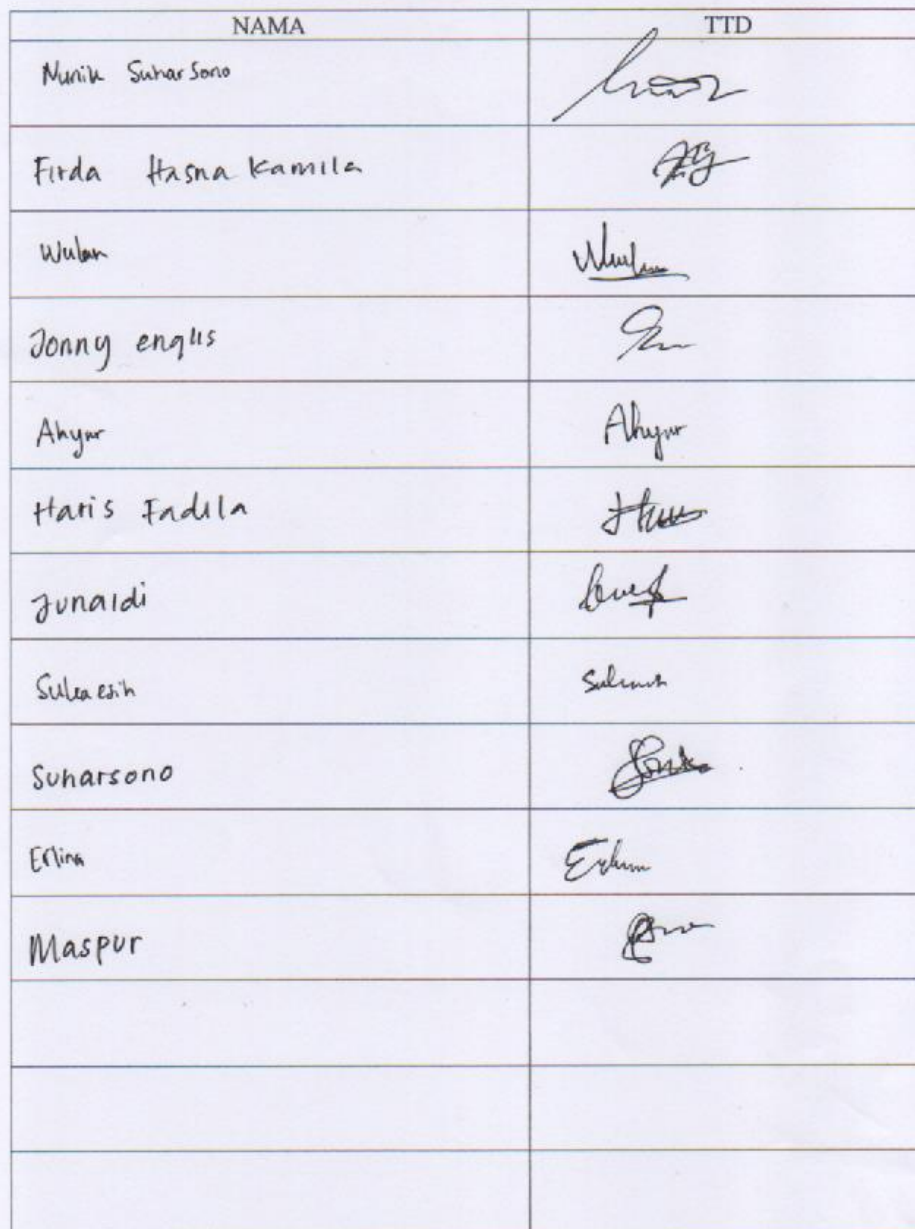 NAMA TTD
Nunik Suharsono
Firda Hasna Kamila
Wulan
Jonny englis
Ahyar Ahyar
Haris Fadila
Junaidi
Sukaesih
Suharsono
Erlina
Maspur